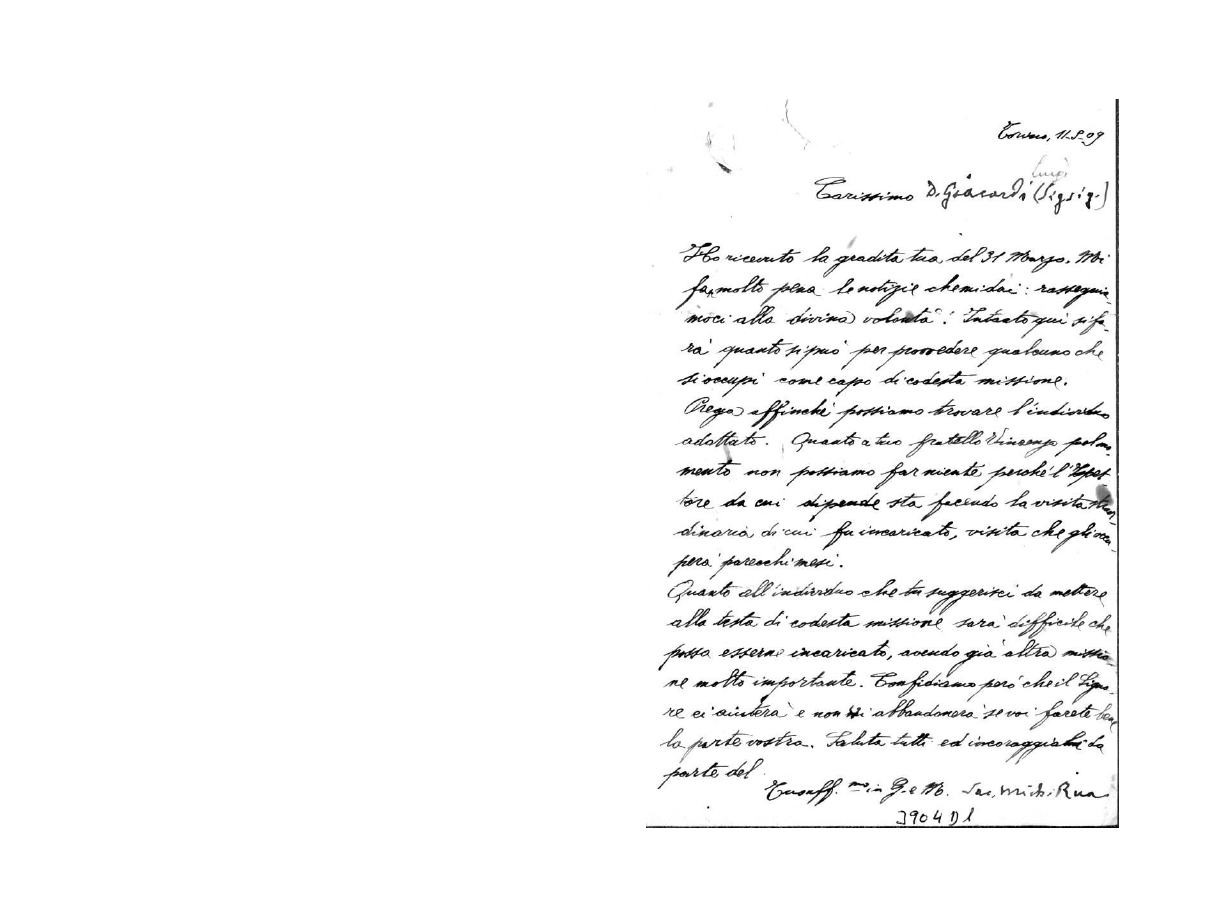 Torino, 11-5-09
Luigi
Carissimo D. Giaccardi (Sigsig.)
Ho ricevuto la gradita tua del 31 Marzo. Mi
fa molto pena le notizie che mi dai: rassegnia-
moci alla divina volontà! Intanto qui si fa-
rà quanto si può per provvedere qualcuno che
si occupi come capo di codesta missione.
Prega affinché possiamo trovare l'individuo
adattato. Quanto a tuo fratello Vincenzo pel mo-
mento non possiamo far niente perché l'Ispet-
tore da cui dipende sta facendo la visita straor-
dinaria di cui fu incaricato, visita che gli occu-
perà parecchi mesi.
Quanto all'individuo che tu suggerisci da mettere
alla testa di codesta missione sarà difficile che
possa esserne incaricato, avendo già altra missio-
ne molto importante. Confidiamo però che il Signo-
re ci aiuterà e non vi abbandonerà se voi farete bene
la parte vostra. Saluta tutti ed incoraggiali da
parte del
Tuo aff.mo in G. e M. Sac. Mich. Rua
3904 D1